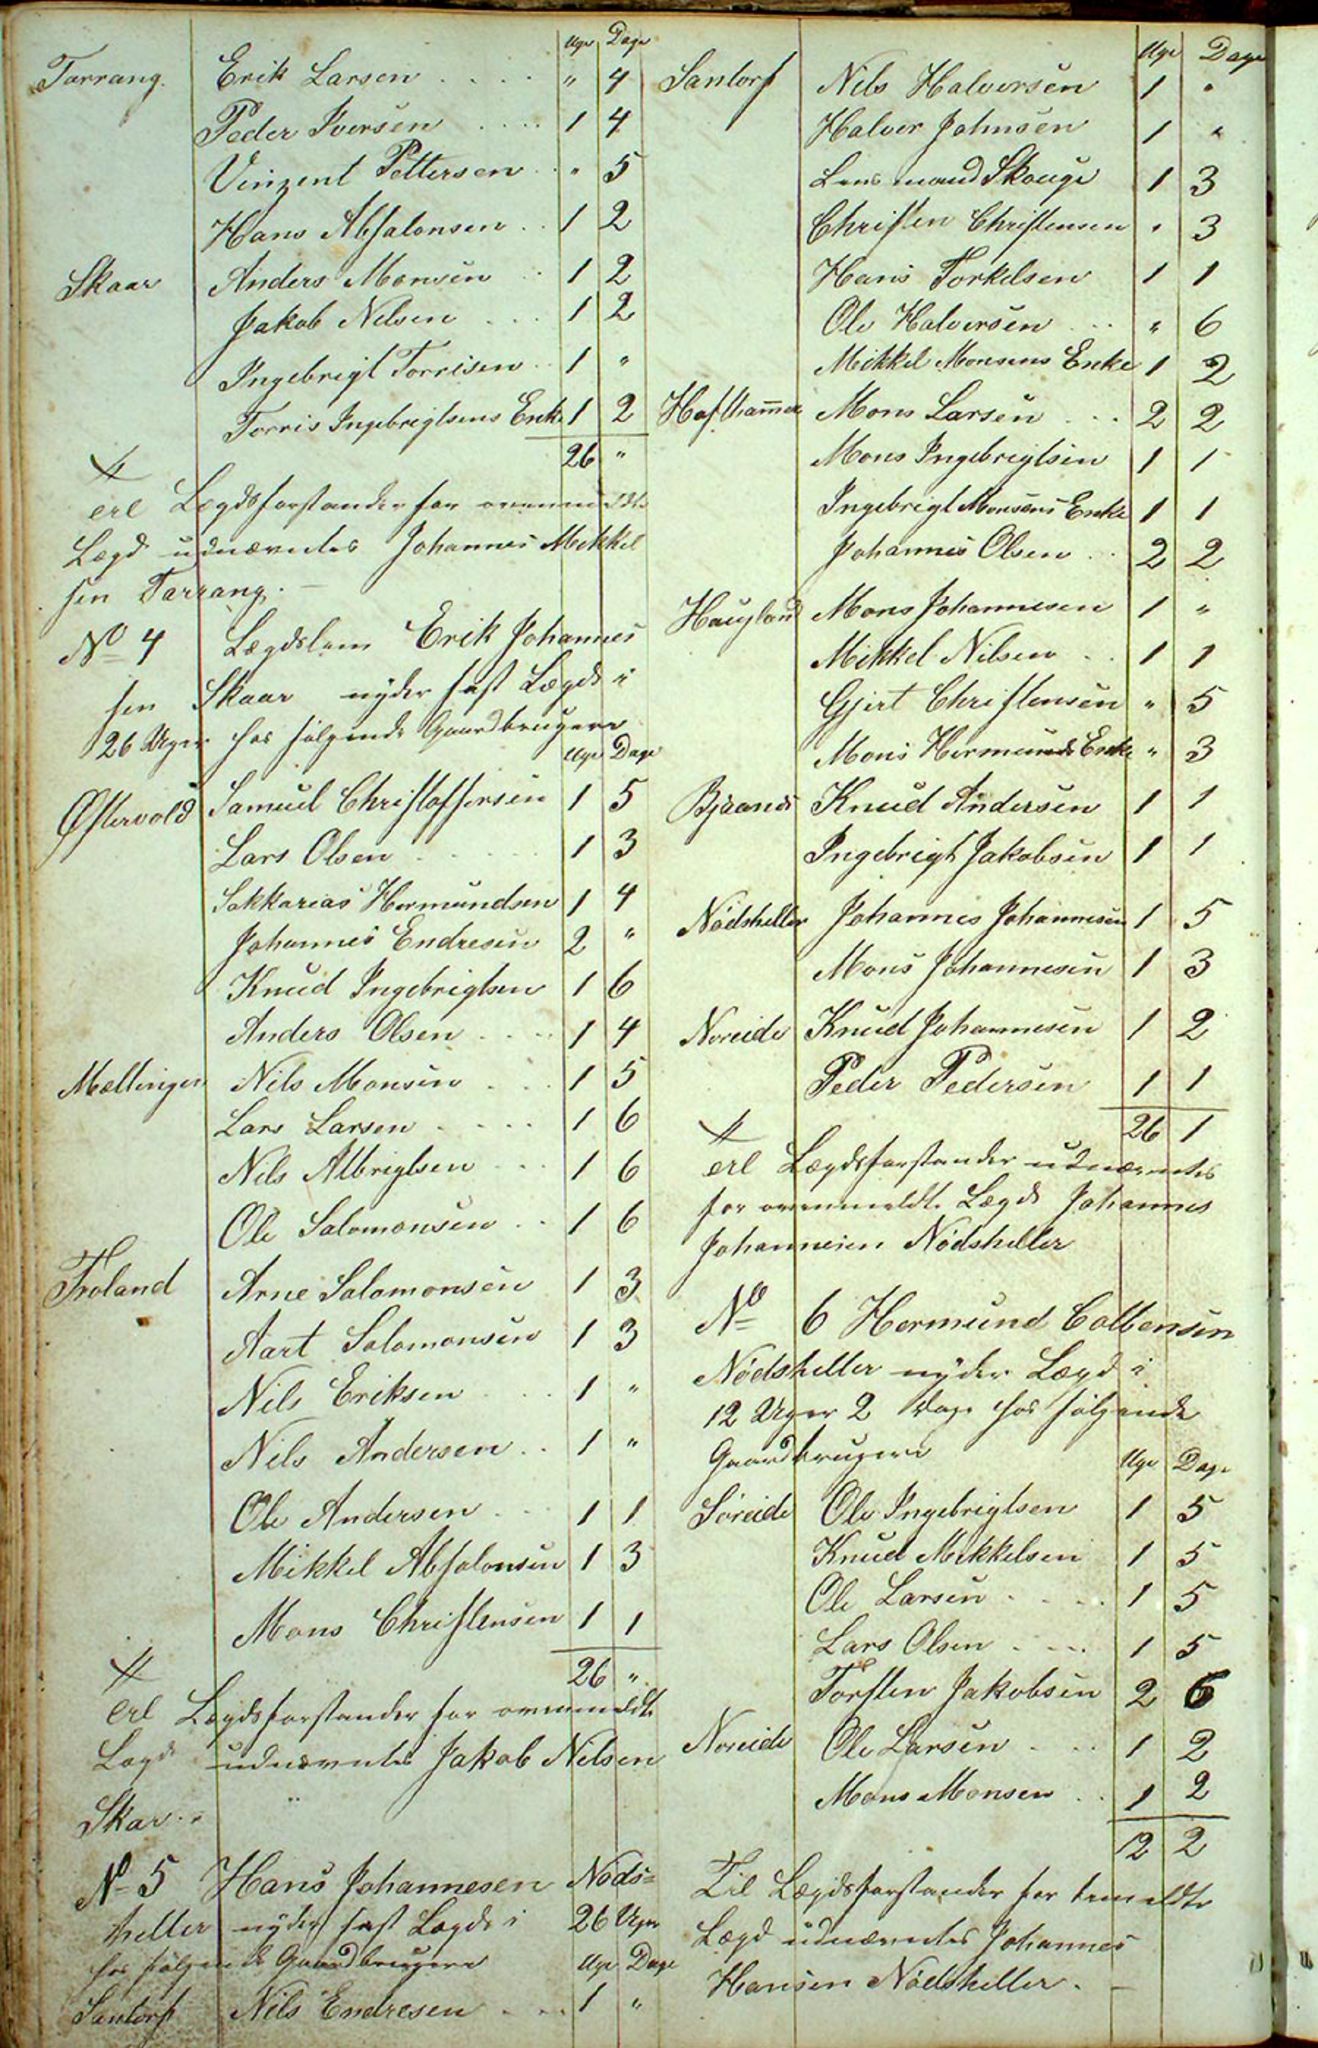 Uger Dage
Tarrang. Erik Larsen .... " 4
Peder Iversen .... 1 4
Vinzent Pettersen .. " 5
Hans Absalonsen .. 1 2
Skaar Anders Monsen .. 1 2
Jakob Nilsen .... 1 2
Ingebrigt Torrisen .. 1 "
Torris Ingebrigtsens Enke 1 2
26 "
Til Lægdsforstander for ovenmeldte
Lægd udnævntes Johannes Mikkel
sen Tarrang. —
No 4 Lægdslem Erik Johannes
sen Skaar nyder fast Lægd i
26 Uger hos følgende Gaardbrugere
Uge Dage
Østervold Samuel Christoffersen 1 5
Lars Olsen ..... 1 3
Sakkarias Hermundsen 1 4
Johannes Endresen 2 "
Knud Ingebrigtsen 1 6
Anders Olsen .... 1 4
Mællingen Nils Monsen ... 1 5
Lars Larsen .... 1 6
Nils Albrigtsen ... 1 6
Ole Salomonsen .. 1 6
Troland Arne Salomonsen 1 3
Aart Salomonsen 1 3
Nils Eriksen .... 1 "
Nils Andersen .. 1 "
Ole Andersen ... 1 1
Mikkel Absalonsen 1 3
Mons Christensen 1 1
26 "
Til Lægdsforstander for ovenmeldte
Lægd udnævntes Jakob Nilsen
Skar. "
No 5 Hans Johannesen Nøds=
heller nyder fast Lægd i 26 Uger
hos følgende Gaardbrugere Uge Dage
Santorf Nils Endresen ... 1 "
Uge Dage
Santorf Nils Halversen 1 "
Halver Johnsen 1 "
Lensmand Skouge 1 3
Christen Christensen " 3
Hans Torkelsen 1 1
Ole Halversen ... " 6
Mikkel Monsens Enke 1 2
Hafthamer Mons Larsen ... 2 2
Mons Ingebrigtsen 1 1
Ingebrigt Monsens Enke 1 1
Johannes Olsen .. 2 2
Haugland Mons Johannesen 1 "
Mikkel Nilsen .. 1 1
Gjert Christensen " 5
Mons Hermunds Enke " 3
Bjaanes Knud Andersen 1 1
Ingebrigt Jakobsen 1 1
Nødsheller Johannes Johannesen 1 5
Mons Johannesen 1 3
Noreide Knud Johannesen 1 2
Peder Pedersen 1 1
26 1
Til Lægdsforstander udnævntes
for ovenmeldte Lægd Johannes
Johannesen Nødsheller
No 6 Hermund Colbensen
Nødsheller nyder Lægd i
12 Uger 2 Dage hos følgende
Gaardbrugere Uge Dage
Søreide Ole Ingebrigtsen 1 5
Knud Mikkelsen 1 5
Ole Larsen .... 1 5
Lars Olsen .... 1 5
Torsten Jakobsen 2 6
Noreide Ole Larsen ... 1 2
Mons Monsen .. 1 2
12 2
Til Lægdsforstander for bemeldte
Lægd udnævntes Johannes
Hansen Nødsheller. —